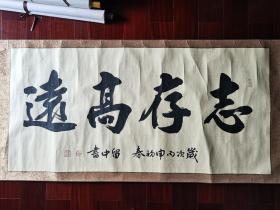 志存高遠
歲次丙申初春 留中書